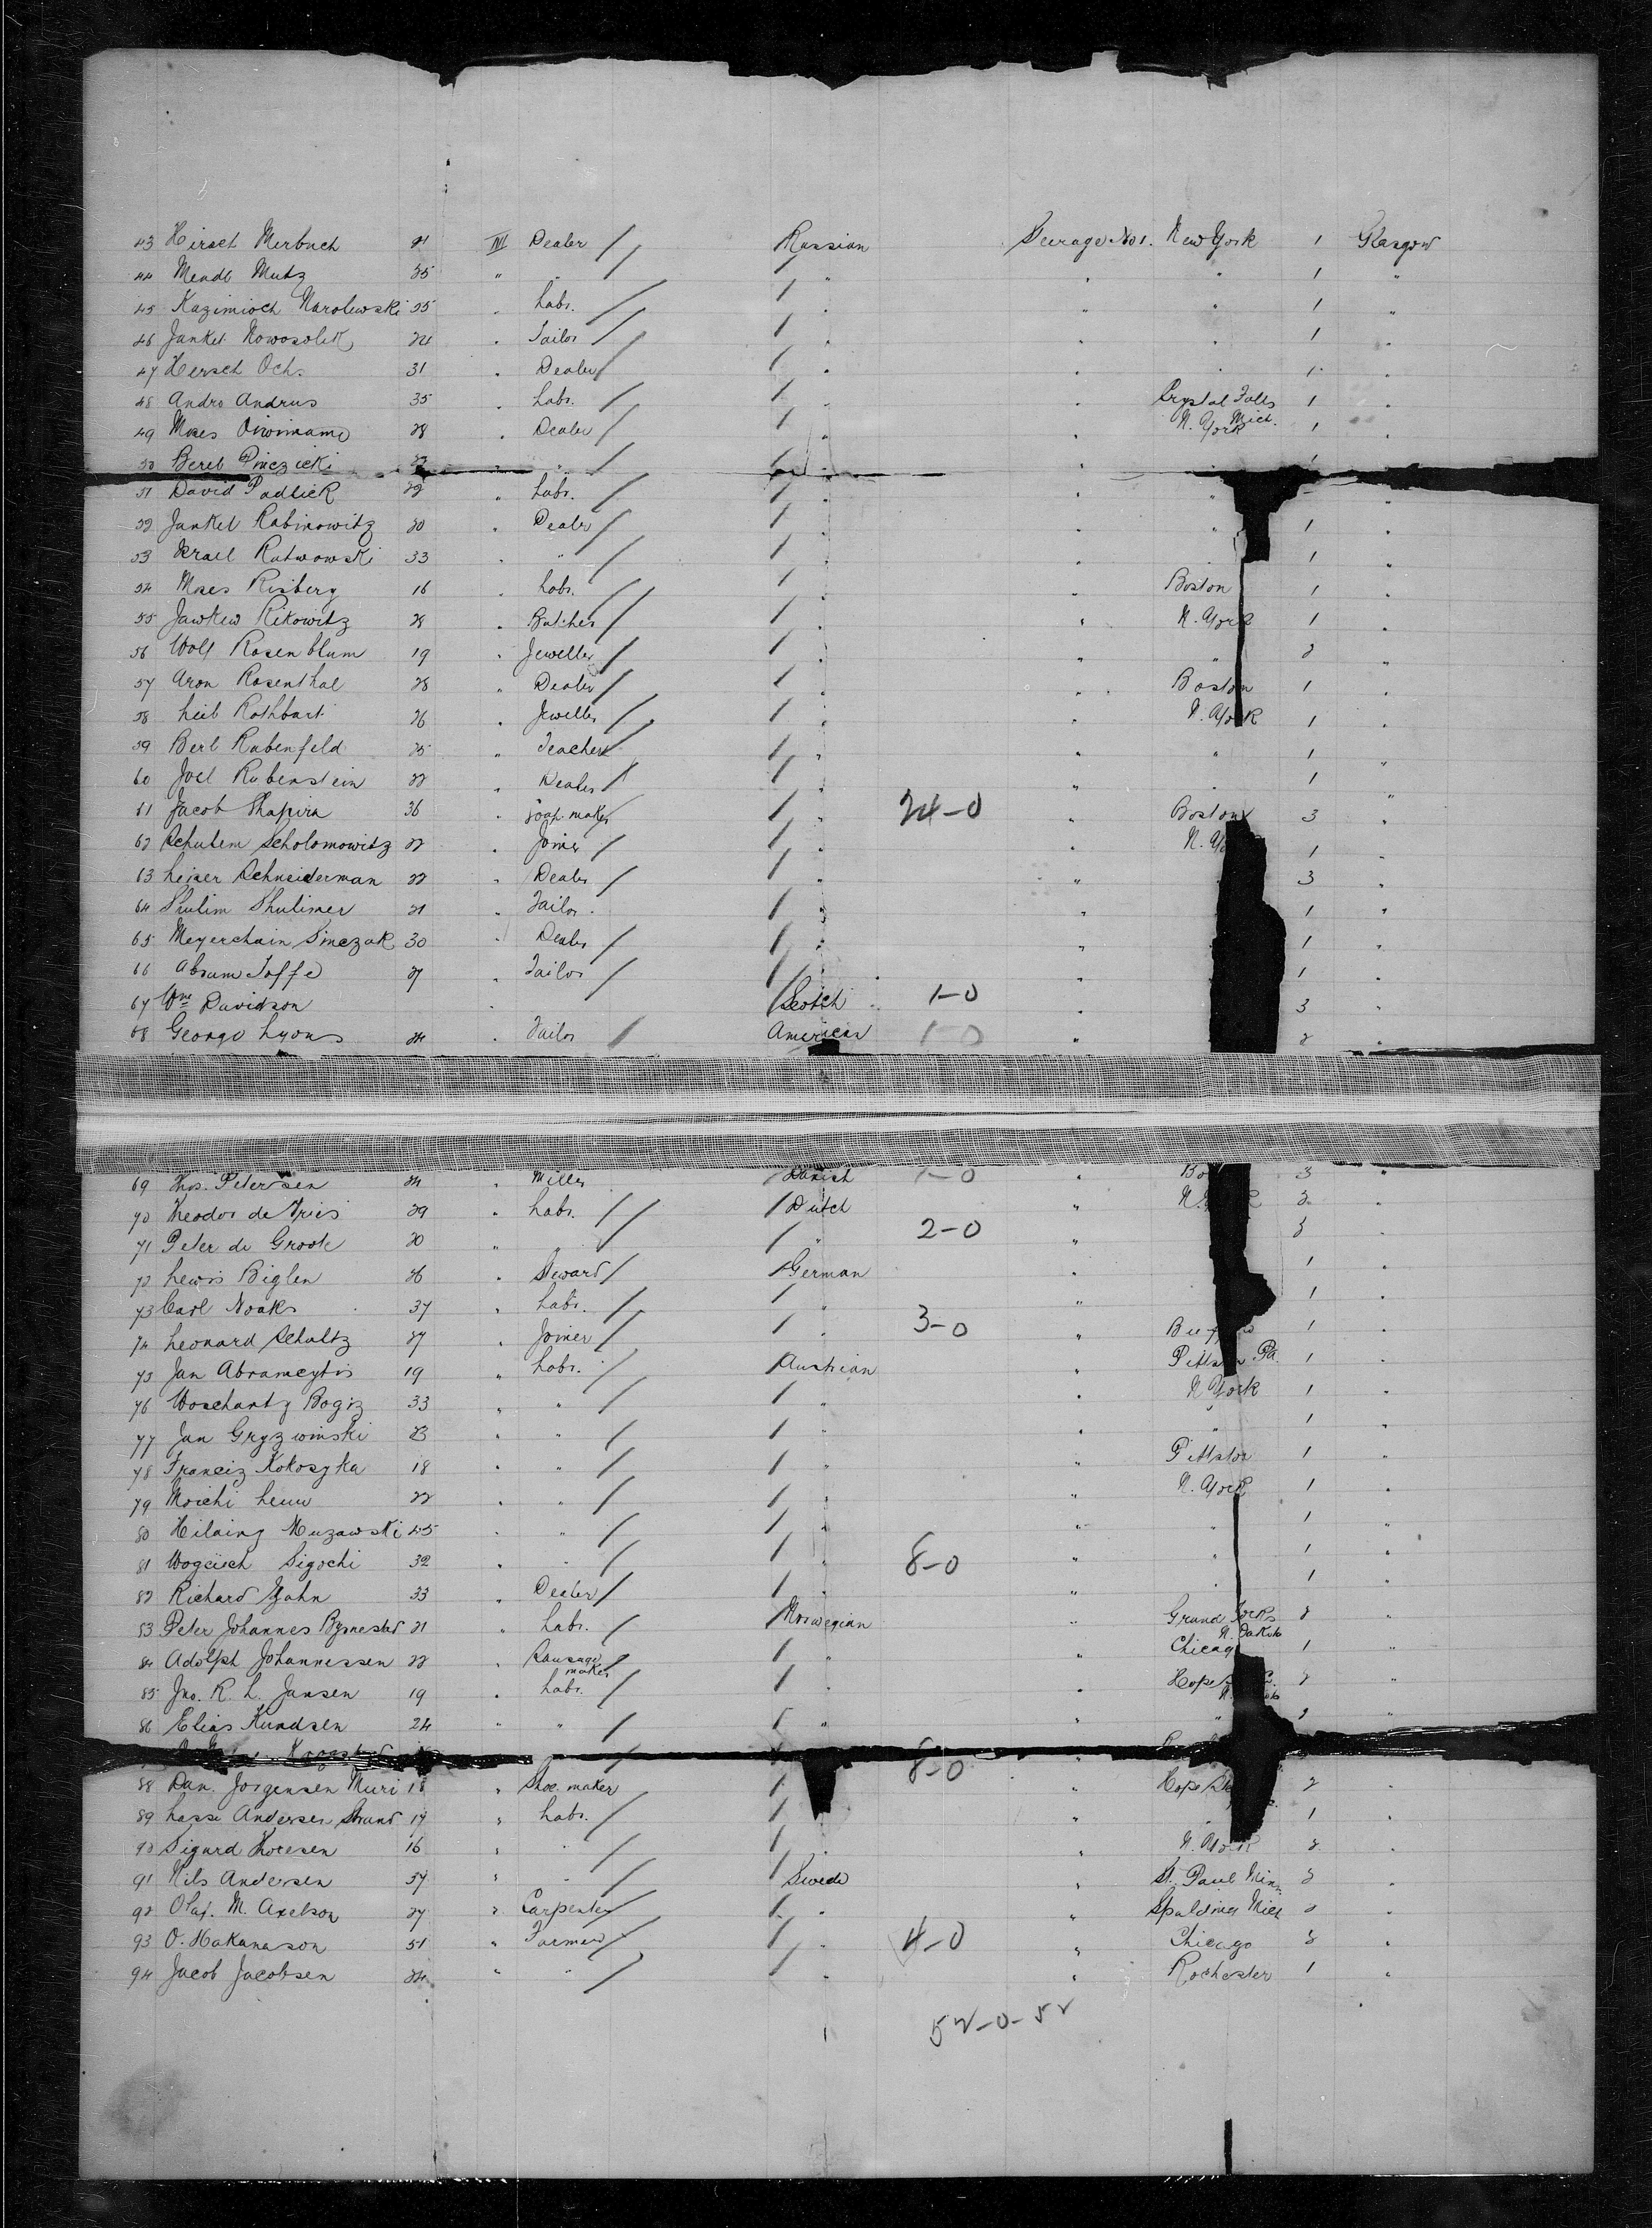 43 Hirsch Merbuch 21 III Dealer Russian Steerage No 1. New York 1 Glasgow
44 Mendl Mutz 35 " " " " " 1 "
45 Kazimioch Narolewski 35 " Labr. " " " 1 "
46 Jankel Nowosolek 24 " Tailor " " " 1 "
47 Hersch Ochs 31 " Dealer " " " 1 "
48 Andro Andrus 35 " Labr. " " Crystal Falls Mich. 1 "
49 Moses 28 " Dealer " " N. York 1 "
50 Berel " " " "
51 David Padlick 22 " Labr. " " " "
52 Jankel Rabinowitz 20 " Dealer " " " 1 "
53 Israel Rutwowski 33 " " " " " 1 "
54 Moses Risberg 16 " Labr. " " Boston 1 "
55 Jawkew Rikowitz 28 " Butcher " " N. York 1 "
56 Wolf Rosenblum 19 " Jeweller " " " 2 "
57 Aron Rosenthal 28 " Dealer " " Boston 1 "
58 Leib Rothbart 26 " Jeweller " " N. York 1 "
59 Berl Rubenfeld 25 " Teacher " " " 1 "
60 Joel Rubenstein 22 " Dealer " " " 1 "
61 Jacob Shapira 36 " Soap maker " 24-0 " Boston 3 "
62 Schulem Scholomowitz 22 " Joiner " " N. Yo 1 "
63 Leiser Schneiderman 22 " Dealer " " 3 "
64 Shulim Shulimer 21 " Tailor " " 1 "
65 Meyerchain Sinczak 30 " Dealer " " 1 "
66 Abram Joffe 27 " Tailor " " 1 "
67 Wm Davidson " Scotch 1-0 " 3 "
68 George Lyons 24 " Tailor American 1-0 " 2 "
69 Hns. Petersen 24 " Miller Danish 1-0 " Bo 3 "
70 Theodor de Vries 29 " Labr. Dutch " N. 2 "
71 Peter de Groote 20 " " " 2-0 " 3 "
72 Lewis Biglen 26 " Steward German " 1 "
73 Carl Noaks 37 " Labr. " " 1 "
74 Leonard Schultz 27 " Joiner " 3-0 " Buffalo 1 "
75 Jan Abrameytis 19 " Labr. Austrian " Pittston Pa. 1 "
76 Woschantz Bogiz 33 " " " " N York 1 "
77 Jan Gryzwinski 23 " " " " " 1 "
78 Franciz Kokosyka 18 " " " " Pittston 1 "
79 Moichi 22 " " " " N. York 1 "
80 Hilaing Muzawski 45 " " " " " 1 "
81 Wogciech Sigochi 32 " " " 8-0 " " 1 "
82 Richard Zahn 33 " Dealer " " " 1 "
83 Peter Johannes 21 " Labr. Norwegian " Grand Forks N. Dakota 2 "
84 Adolph Johannessen 22 " Sausage maker " " Chicago 1 "
85 Jno. R. L. Jansen 19 " Labr. " " Hope 2 "
86 Elias Kundsen 24 " " " " " 2 "
8-0
88 Dan. Jorgensen Muri 18 " Shoe maker " " Hope 2 "
89 Lasse Andersen Strand 17 " Labr. " " 1 "
90 Sigurd Thoresen 16 " " " " N. York 2 "
91 Nils Andersen 37 " " Swede " St. Paul Minn. 2 "
92 Olaf. M. Axelson 27 " Carpenter " " Spalding Mich 2 "
93 O. Hakanason 51 " Farmer " 4-0 " Chicago 2 "
94 Jacob Jacobsen 24 " " " " Rochester 1 "
52-0-52